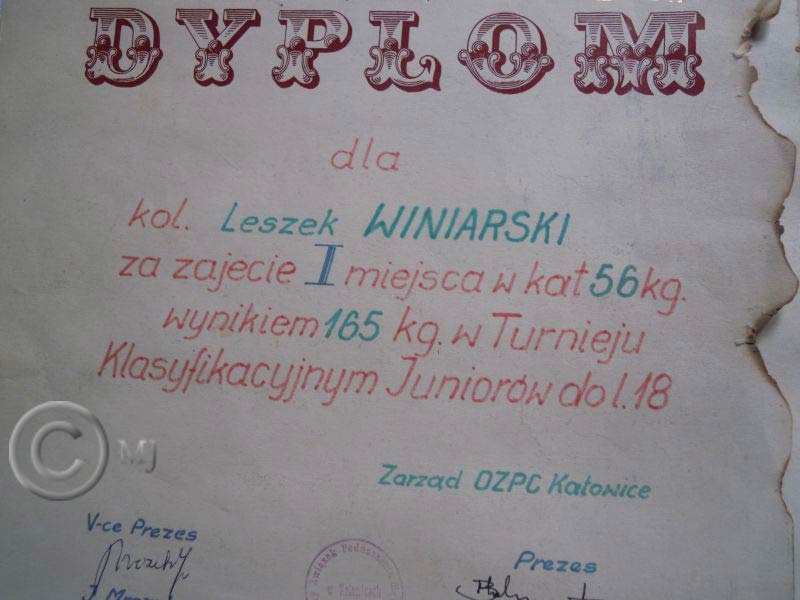 DYPLOM
dla
kol. Leszek WINIARSKI
za zajecie I miejsca w kat 56 kg.
wynikiem 165 kg. w Turnieju
Klasyfikacyjnym Juniorów do l. 18
© MJ
Zarząd OZPC Katowice
V-ce Prezes
Prezes